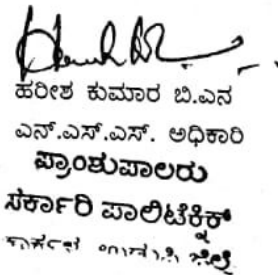 ಹರೀಶ ಕುಮಾರ ಬಿ.ಎನ
ಎನ್.ಎಸ್.ಎಸ್. ಅಧಿಕಾರಿ
ಪ್ರಾಂಶುಪಾಲರು
ಸರ್ಕಾರಿ ಪಾಲಿಟೆಕ್ನಿಕ್
ಜಿಲ್ಲೆ